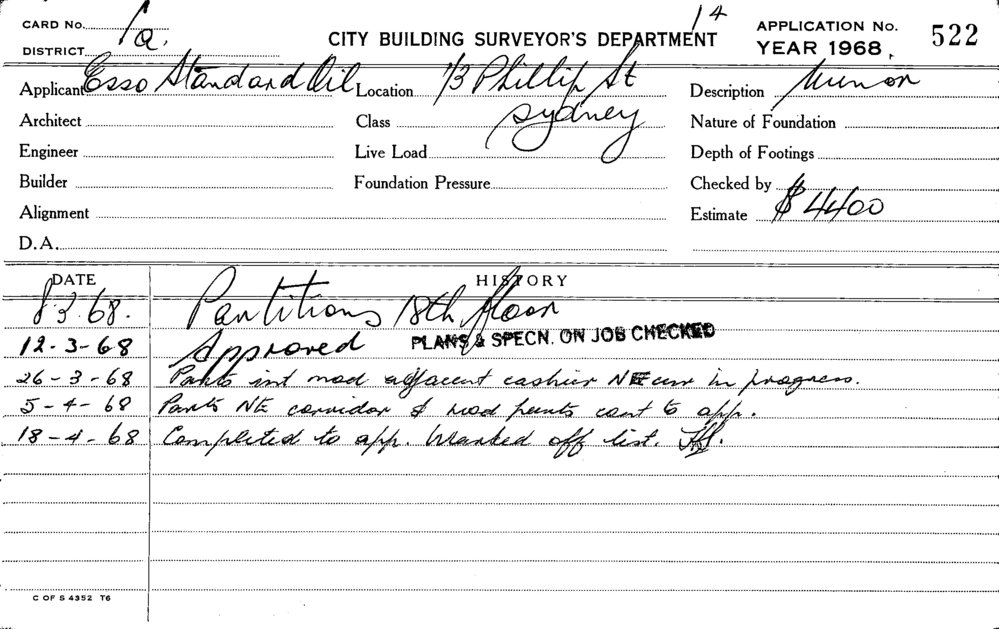 CARD No. 1a. 14 APPLICATION No. 522
DISTRICT CITY BUILDING SURVEYOR'S DEPARTMENT YEAR 1968.
Applicant Esso Standard Oil Location 1/3 Phillip St Description Minor
Architect Class Sydney Nature of Foundation
Engineer Live Load Depth of Footings
Builder Foundation Pressure Checked by
Alignment Estimate $4400
D.A.
DATE HISTORY
8.3.68. Partitions 18th floor
12-3-68 Approved PLANS & SPECN. ON JOB CHECKED
26-3-68 Parts int mod adjacent cashier in progress.
5-4-68 Parts NE corridor & mod cont to app.
18-4-68 Completed to app. Marked off list.
C OF S 4352 T6